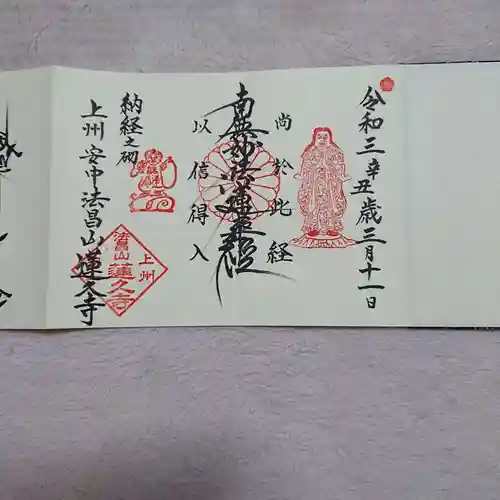 令和三辛丑歳三月十一日
尚於此経
南無妙法蓮華経
以信得入
納経之砌
上州安中法昌山蓮久寺
上州
蓮久寺
法昌山